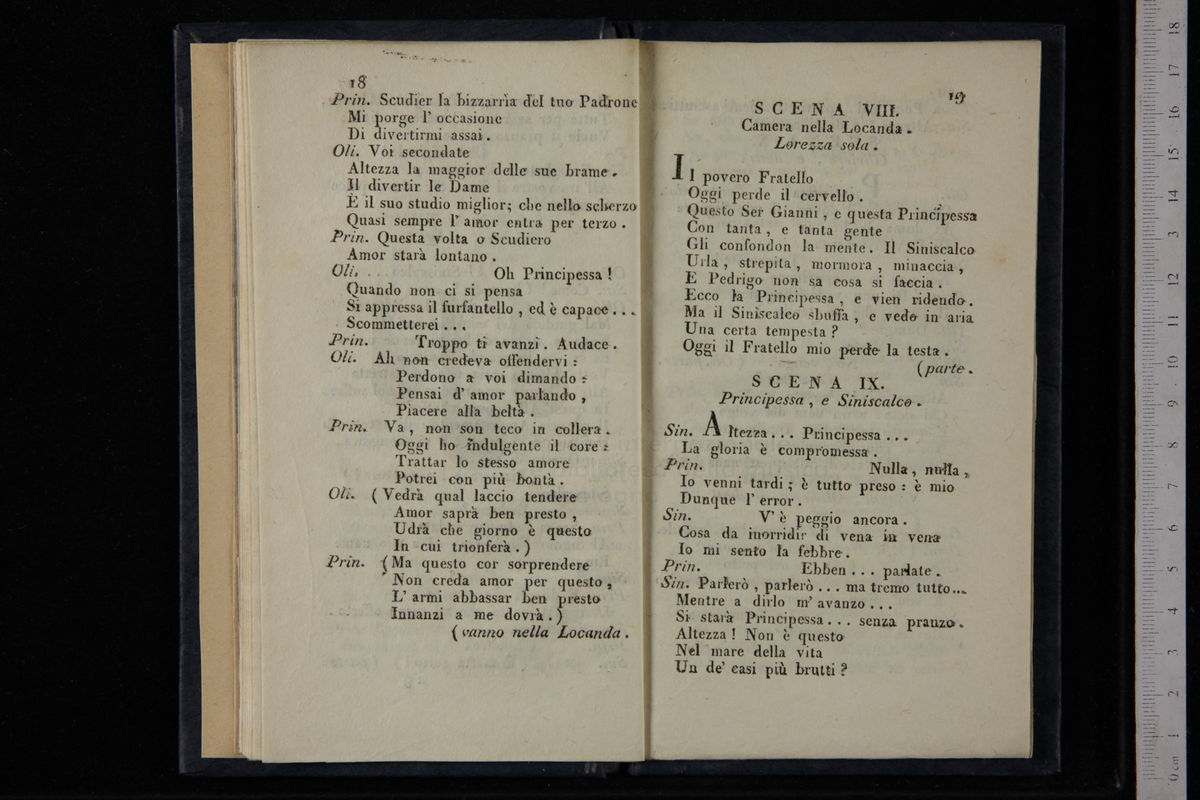 18
Prin. Scudier la bizzarrìa del tuo Padrone
Mi porge l' occasione
Di divertirmi assai.
Oli. Voi secondate
Altezza la maggior delle sue brame.
Il divertir le Dame
È il suo studio miglior; che nello scherzo
Quasi sempre l' amor entra per terzo.
Prin. Questa volta o Scudiero
Amor starà lontano.
Oli. . . Oh Principessa!
Quando non ci si pensa
Si appressa il furfantello, ed è capace...
Scommetterei...
Prin. Troppo ti avanzi. Audace.
Oli. Ah non credeva offendervi:
Perdono a voi dimando:
Pensai d' amor parlando,
Piacere alla beltà.
Prin. Va, non son teco in collera.
Oggi ho indulgente il core:
Trattar lo stesso amore
Potrei con più bontà.
Oli. (Vedrà qual laccio tendere
Amor saprà ben presto,
Udrà che giorno è questo
In cui trionferà.)
Prin. (Ma questo cor sorprendere
Non creda amor per questo,
L' armi abbassar ben presto
Innanzi a me dovrà.)
(vanno nella Locanda.
19
SCENA VIII.
Camera nella Locanda.
Lorezza sola.
Il povero Fratello
Oggi perde il cervello.
Questo Ser Gianni, e questa Principessa
Con tanta, e tanta gente
Gli confondon la mente. Il Siniscalco
Urla, strepita, mormora, minaccia,
E Pedrigo non sa cosa si faccia.
Ecco la Principessa, e vien ridendo.
Ma il Siniscalco sbuffa, e vedo in aria
Una certa tempesta?
Oggi il Fratello mio perde la testa.
(parte.
SCENA IX.
Principessa, e Siniscalco.
Sin. Altezza... Principessa...
La gloria è compromessa.
Prin. Nulla, nulla,
Io venni tardi; è tutto preso: è mio
Dunque l' error.
Sin. V' è peggio ancora.
Cosa da inorridir di vena in vena
Io mi sento la febbre.
Prin. Ebben... parlate.
Sin. Parlerò, parlerò... ma tremo tutto...
Mentre a dirlo m' avanzo...
Si starà Principessa... senza pranzo.
Altezza! Non è questo
Nel mare della vita
Un de' casi più brutti?